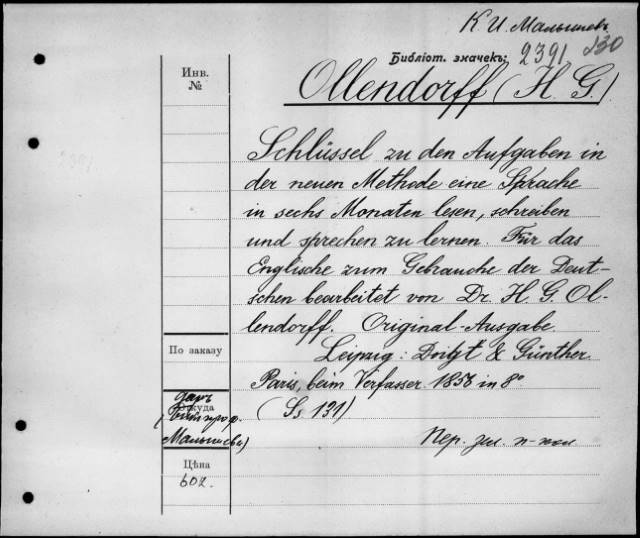 К И. Малышевъ
Библіот. значекъ: 2391 530
Ollendorff (H. G.)
Инв.
№
Schlüssel zu den Aufgaben in
der neuen Methode eine Sprache
in sechs Monaten lesen, schreiben
und sprechen zu lernen. Für das
Englische zum Gebrauche der Deut-
schen bearbeitet von Dr. H. G. Ol-
lendorff. Original-Ausgabe.
Leipzig: & Günther.
Paris, beim Verfasser. 1858 in 8°
(Ss. 131)
Пер.
По заказу
даръ
Откуда
Малышева)
Цѣна
602.
2391